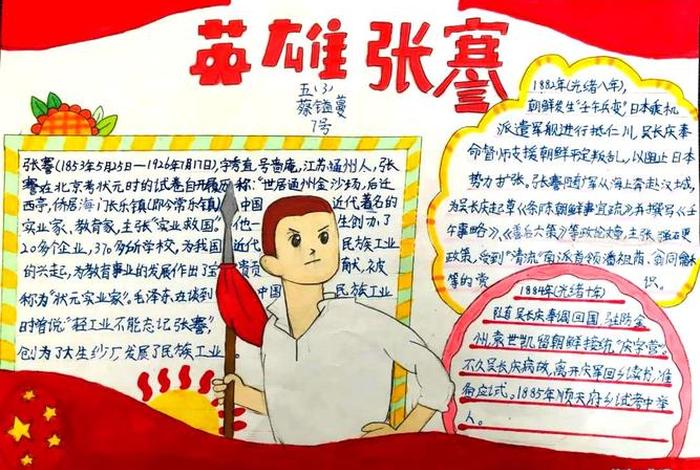 英雄张謇
五(3)
蔡镒蔓
7号
张謇(1853年5月25日—1926年7月17日),字季直,号啬庵,江苏通州人,张
謇在北京考状元时的试卷自开履历称:"世居通州金沙场,后迁
西亭,侨居海门长乐镇(即今常乐镇) 中国 近代著名的
实业家、教育家,主张"实业救国。他一 生创办了
20多个企业,370多所学校,为我国 近代 民族工业
的兴起,为教育事业的发展作出了宝 贵贡 献,被
称为"状元实业家。毛泽东在谈到 中国 民族工业
时曾说:"轻工业不能忘记张謇"
创办了大生纱厂发展了民族工业
1882年(光绪八年),
朝鲜发生"壬午兵变,日本乘机
派遣军舰进行抵仁川,吴长庆奉
命督师支援朝鲜平定叛乱,以阻止日本
势力扩张。张謇随庆军从海上奔赴汉城,
为吴长庆起草《条陈朝鲜事宜疏》并撰写《壬
午事略》、《善后六策》等政论文章,主张强硬
政策,受到"清流"南派首领潘祖荫、翁同龢
等的赏 识。
1884年(光绪十年)
随吴长庆奉调回国,驻防金
州,袁世凯留朝鲜接统"庆字营"。
不久吴长庆病故,离开庆军回乡读书,准
备应试。1885年顺天府乡试考中举
人。